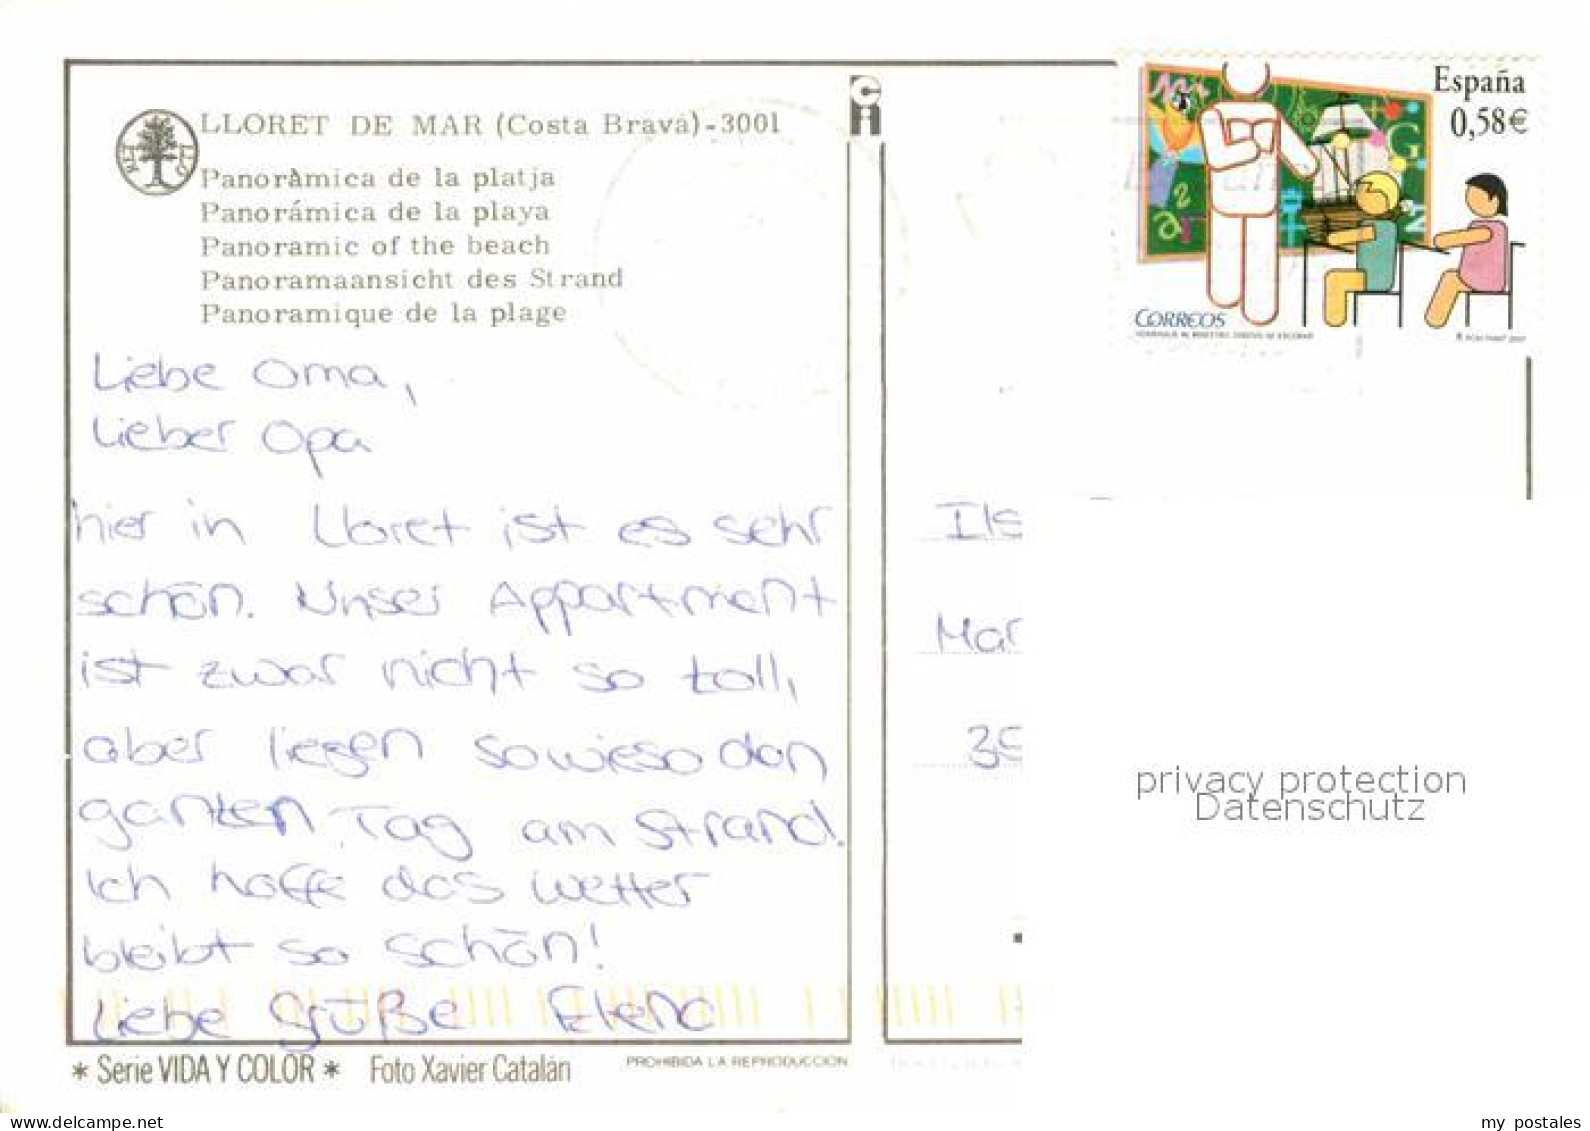 LLORET DE MAR (Costa Brava)-3001
PanorÀmica de la platja
Panorámica de la playa
Panoramic of the beach
Panoramaansicht des Strand
Panoramique de la plage
España
0,58€
CORREOS
Liebe Oma,
Lieber Opa
hier in Lloret ist es sehr
schön. Unser Appartment
ist zwar nicht so toll,
aber liegen sowieso den
ganzen Tag am Strand.
Ich hoffe das Wetter
bleibt so schön!
Liebe Grüße Elena
Ils
Mar
privacy protection
Datenschutz
* Serie VIDA Y COLOR * Foto Xavier Catalán
PROHIBIDA LA REPRODUCCION
my_postales